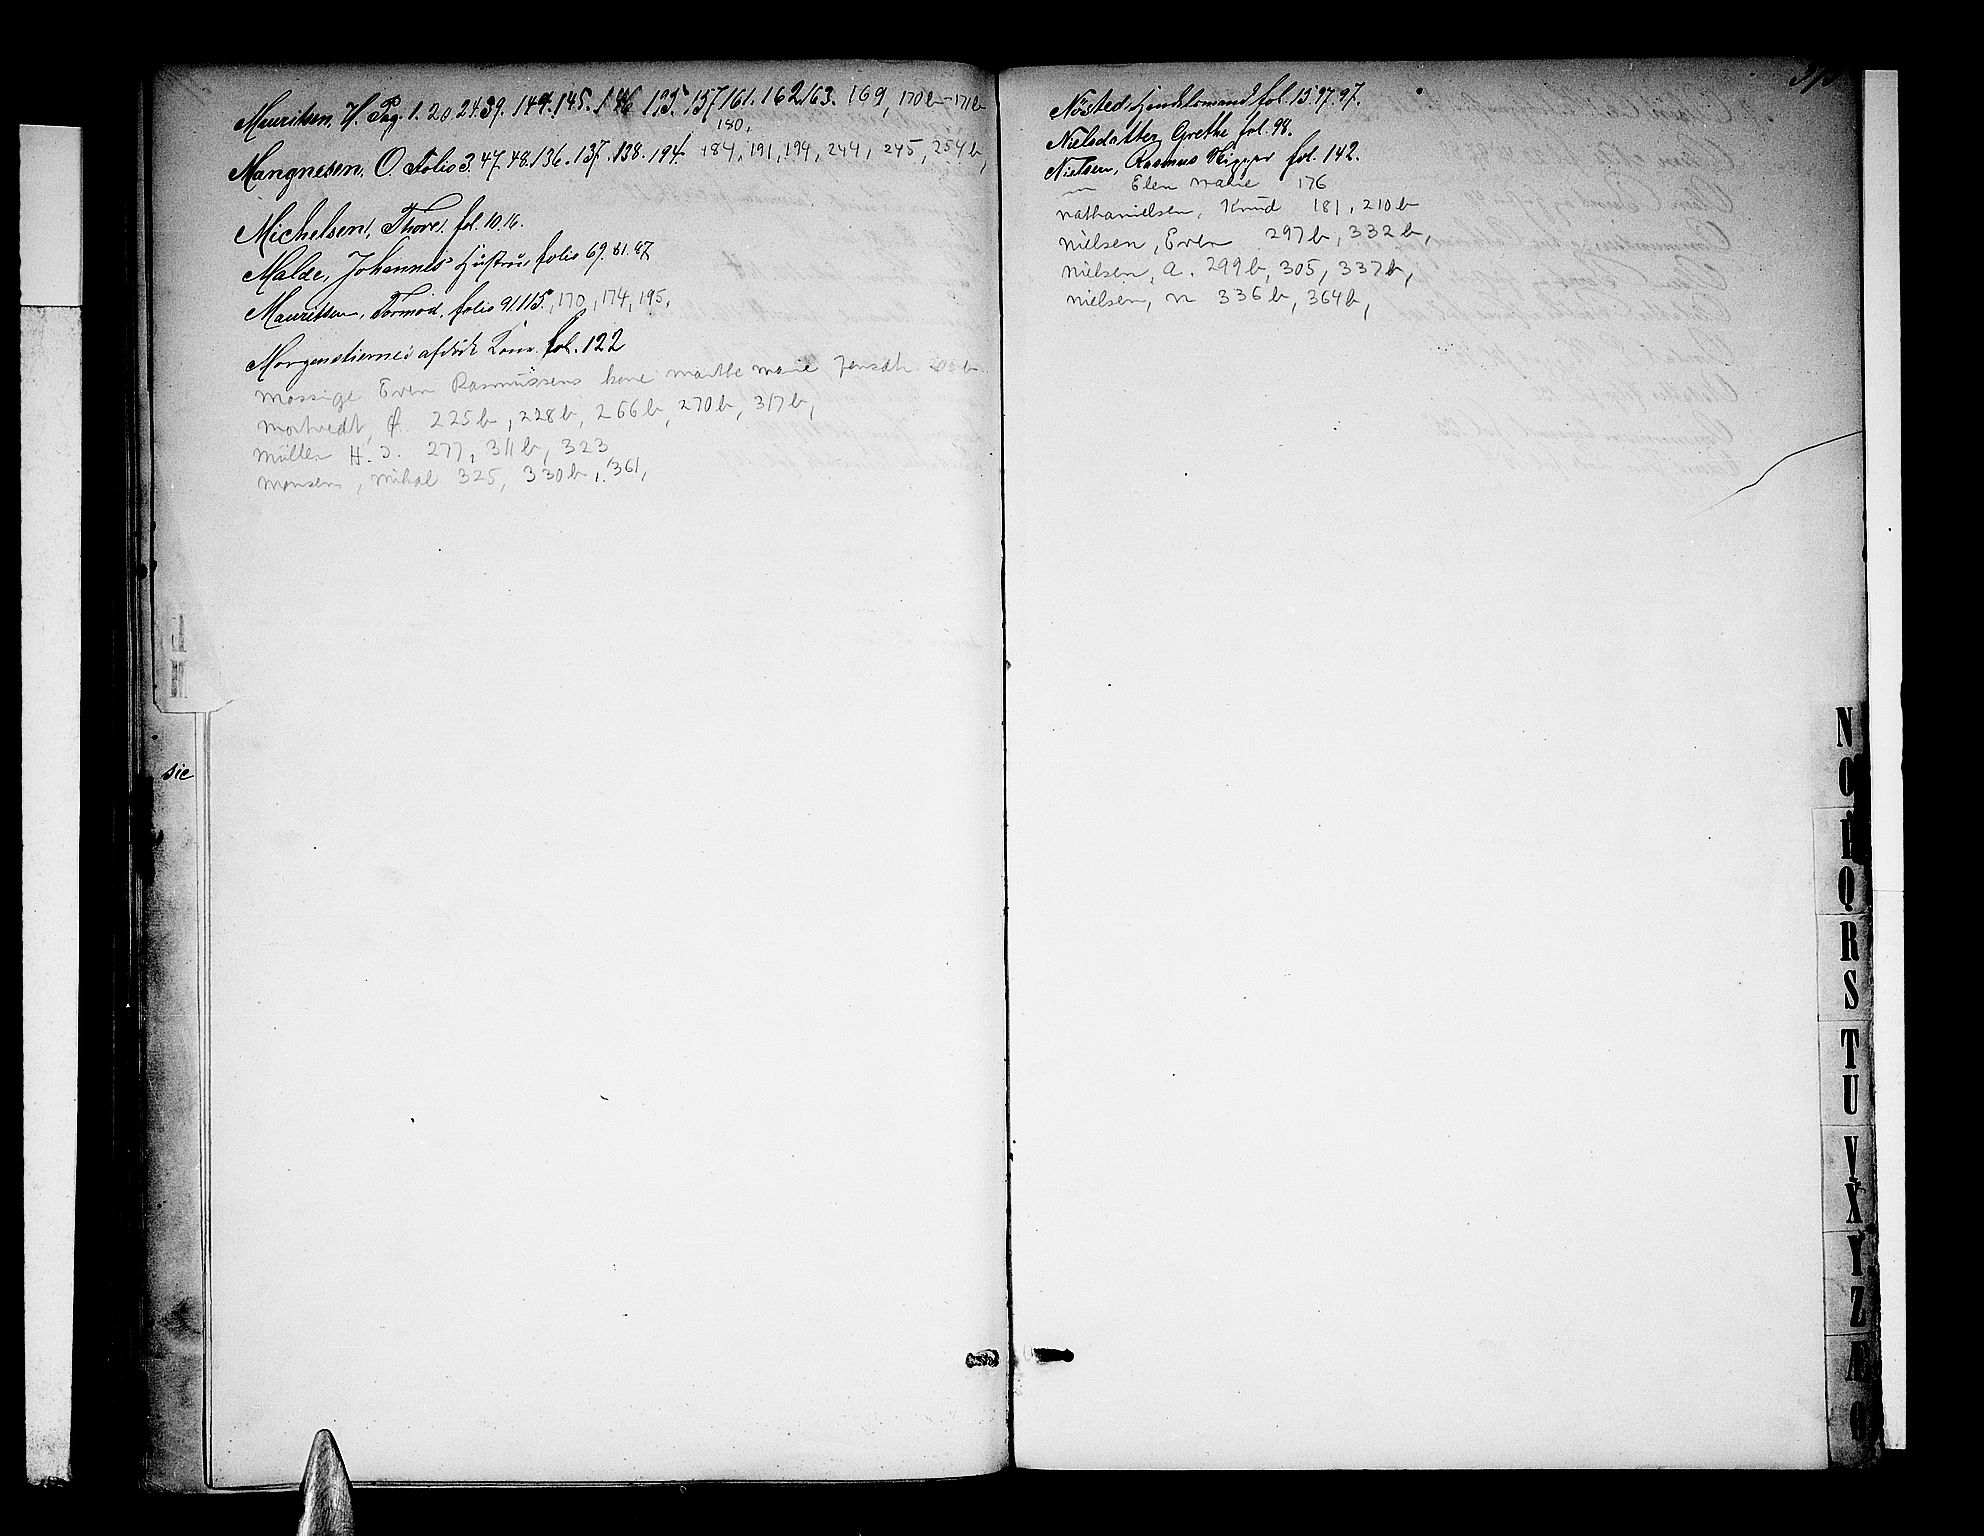 Mauritsen, H. Pag. 1. 20. 24. 39. 144. 145. 146 155. 157 161. 162. 163. 169, 170 b 171 b
180,
Mangnesen, O. Folio 3. 47. 48. 136. 137. 138. 194. 184, 191, 194, 244, 245, 254 b,
Michelsen, Thore, fol. 10. 16.
Malde, Johannes Hustru, folio 69. 81. 87
Mauritsen, Tormod, folio 91. 115. 170, 174, 195,
Morgenstiernes fol. 122
Mossige Even Rasmussens kone Marthe Marie Jensdtr
Mortvedt, Ø. 225 b, 228 b, 266 b, 270 b, 317 b,
Müller H. J. 277, 311 b, 323
Monsen, Mikal 325, 330 b, 361,
sie
J
Nøsted, Handelsmand fol. 15. 97. 97.
Nielsdatter, Grethe fol. 98.
Nielsen, Rasmus Skipper fol. 142.
— Elen Marie 176
Nathanielsen, Knud 181, 210 b
Nielsen, Even 297 b, 332 b,
Nielsen, A. 299 b, 305, 337 b,
Nielsen, N 336 b, 364 b,
N
O
P
Q
R
S
T
U
V
X
Y
Z
Æ
Ø